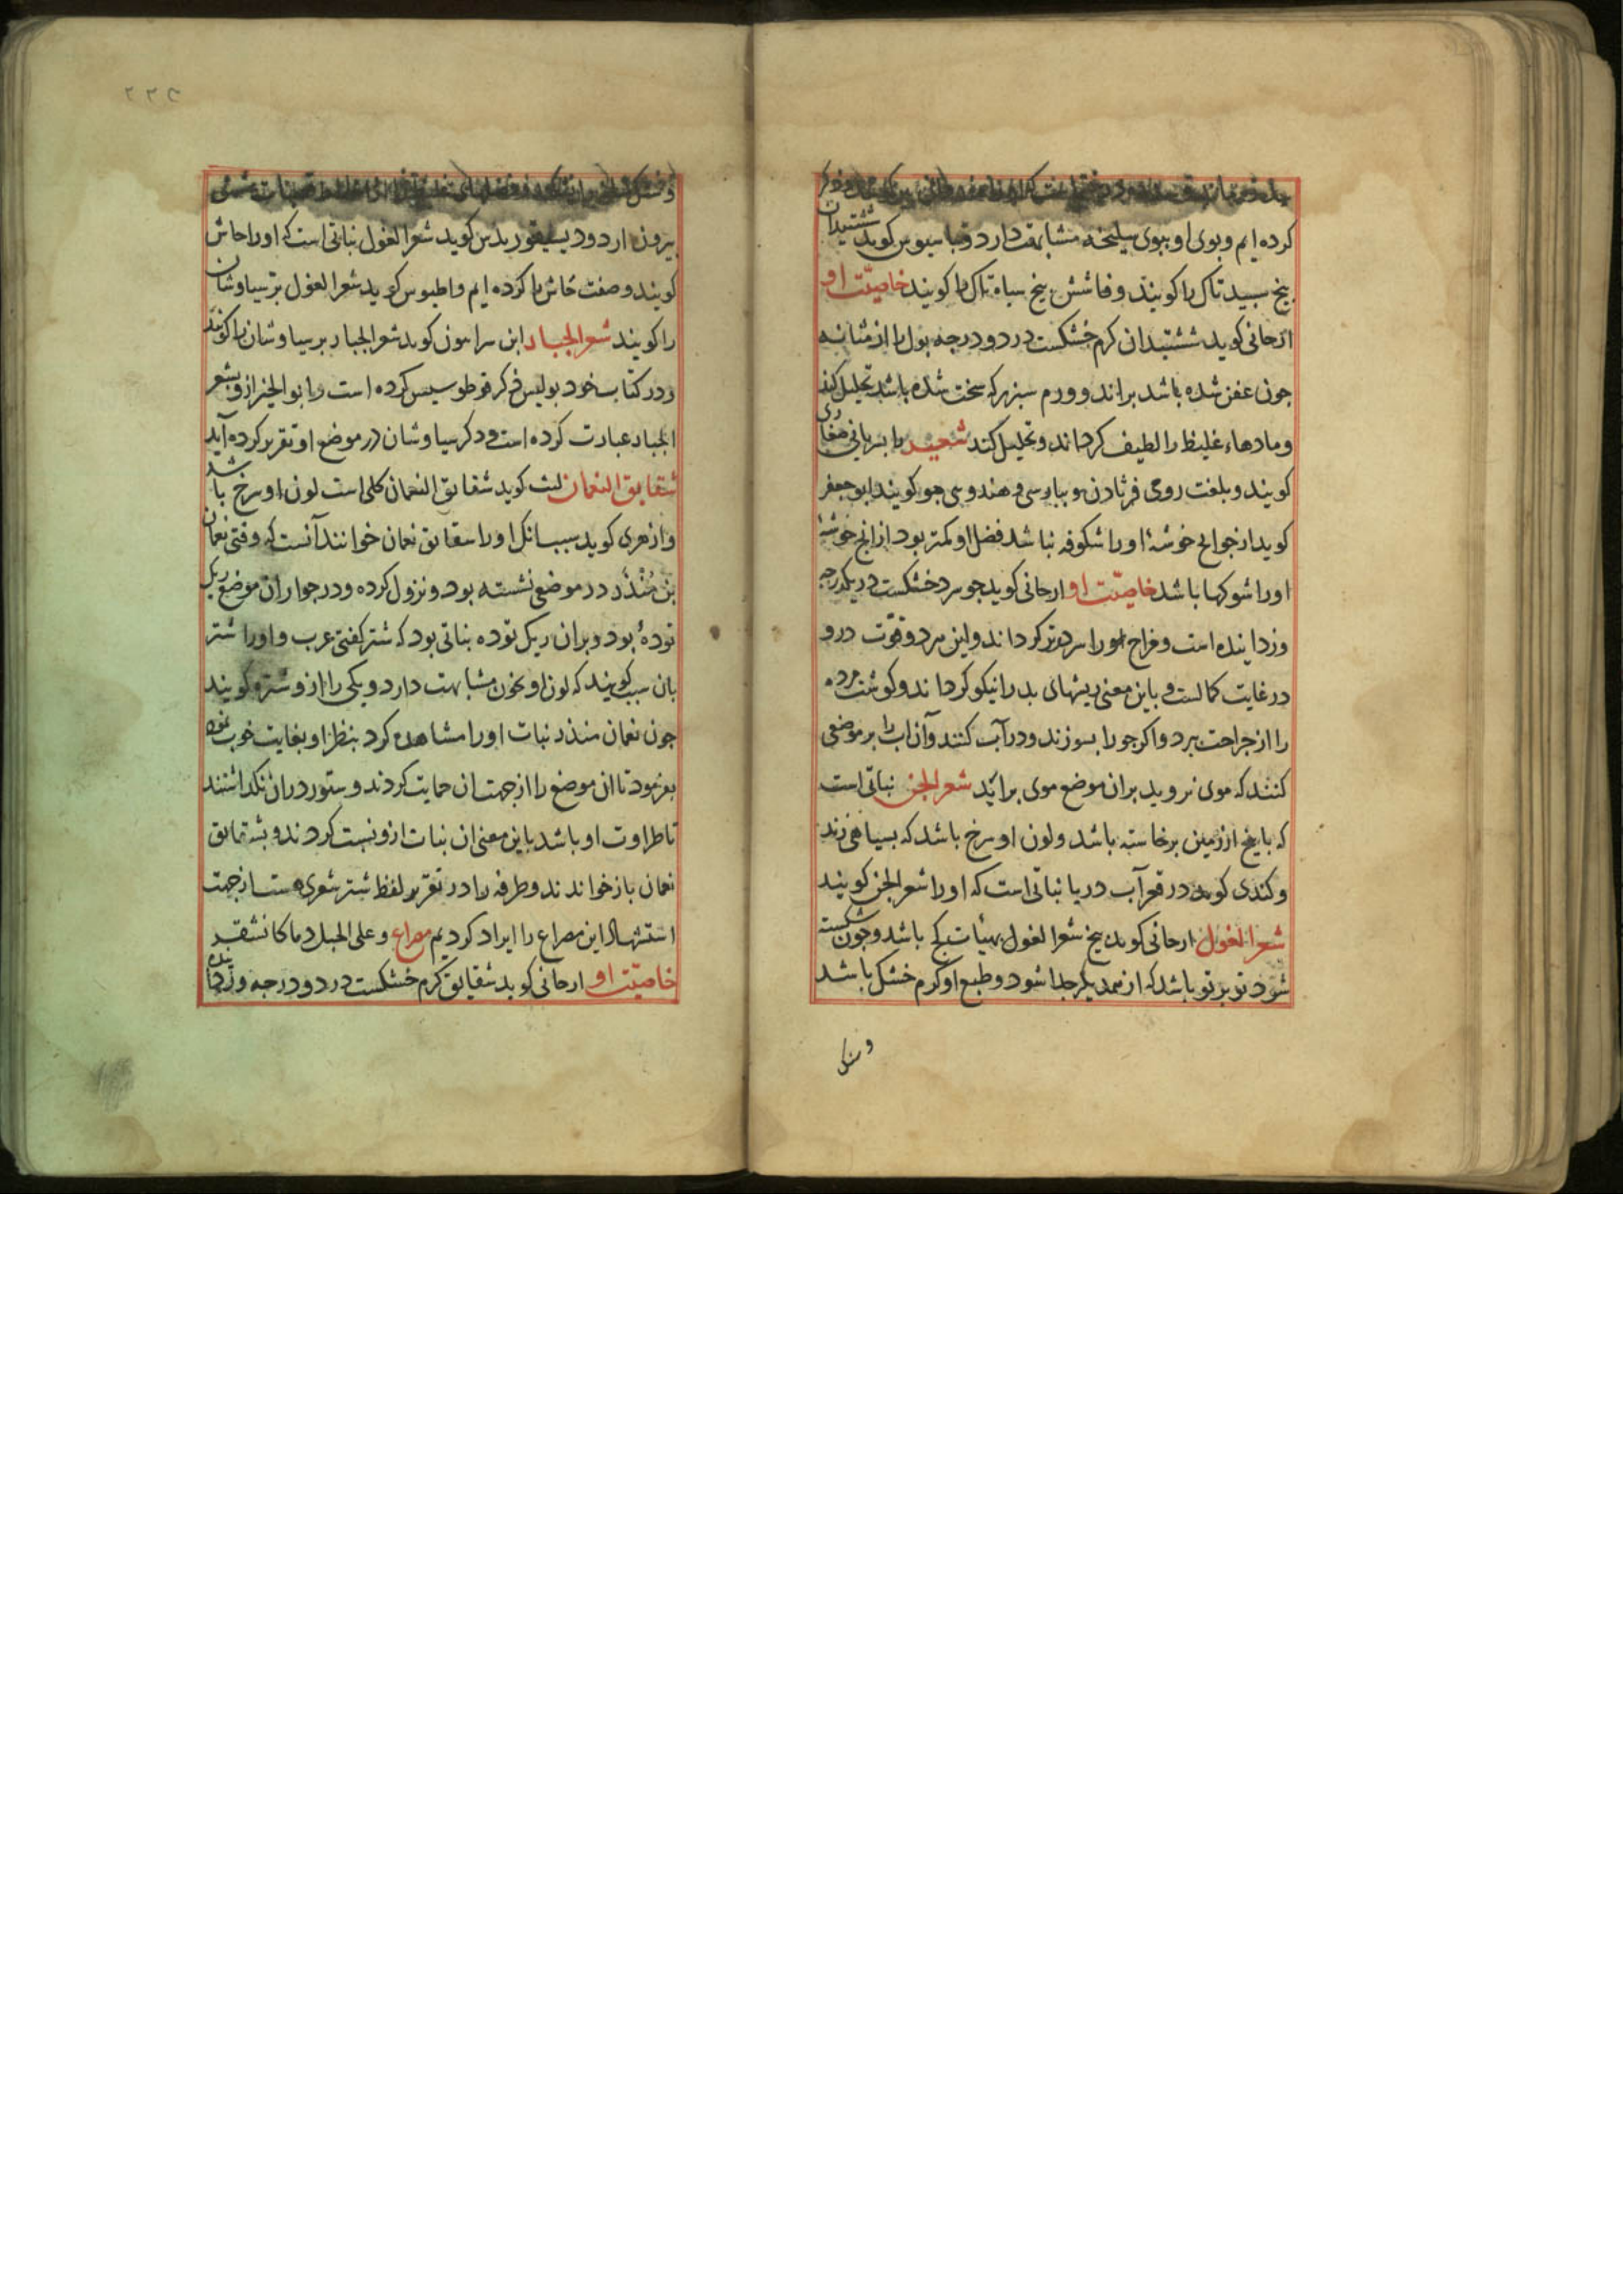 کرده ایم و بوی او ببوی سلیخه مشابهت دارد و باسیوس کوید ششتیدان
بیخ سپید تاک را کویند و فاشش بیخ سیاه تاک را کویند خاصیّت او
ارجانی کوید ششتیدان کرم خشکست در دو درجه بول را از مثانه
جون عفن شده باشد براند و ورم سبرز که سخت شده باشد تحلیل کند
و مادهاء غلیظ را لطیف کرداند و تحلیل کند شعیر را بسریانی
کویند و بلغت رومی و بپارسی و هندوی جو کویند ابو جعفر
کوید از جو انج خوشهٔ او را شکوفه نباشد فضل او کمتر بود از انج خوشهٔ
او را شوکها باشد خاصیّت او ارجانی کوید جو سرد خشکست در یک درجه
و زداینده است و مزاج او را سردتر کرداند و این سرد و قوّت درو
در غایت کمالست و باین معنی ریشهای بد را نیکو کرداند و کوشت مرده
را از جراحت ببرد و اکر جو را بسوزند و در آب کنند و آن اب را بر موضعی
کنند که موی نروید بران موضع موی براید شعر الجن نباتی است
که با یخ از زمین برخاسته باشد و لون او سرخ باشد که بسیاهی زند
و کندی کوید در قعر آب دریا نباتی است که او را شعر الجن کویند
شعر الغول ارجانی کوید بیخ شعر الغول بهیأت کج باشد و جون شکسته
شود تو بر تو باشد که از همدیکر جدا شود و طبع او کرم خشک باشد
بیرون ارد و دیسقوریدس کوید شعر الغول نباتی است که او را حاش
کویند و صفت حاش را کرده ایم و اطیوس کوید شعر الغول برسیاوشان
را کویند شعر الجبار ابن سراسون کوید شعر الجبار برسیاوشان را کویند
و در کتاب خود بولیس ذکر قوطوسیس کرده است و ابو الخیر ازو بشعر
الجبار عبارت کرده است و ذکر سیاوشان در موضع او تقریر کرده آید
شقایق النعمان لیث کوید شقایق النعمان کلی است لون او سرخ باشد
و ازهری کوید سبب انک او را شقایق نعمان خوانند آنست که وقتی نعمان
بن مُنْذَر در موضعی نشسته بود و نزول کرده و در جوار ان موضع ریک
تودهٔ بود و بران ریک توده نباتی بود که شقر کفتی عرب و او را شقر
بان سبب کویند که لون او بخون مشابهت دارد و یکی را ازو شقره کویند
جون نعمان منذر نبات او را مشاهده کرد بنظر او بغایت خوب نمود
بفرمود تا ان موضع را از جهت ان حمایت کردند و ستور دران نکذاشتند
تا طراوت او باشد باین معنی ان نبات ازو نسبت کردند و بشقایق
نعمان باز خواندند و طرفه را در تقریر لفظ شقر شعری هست از جهت
استشهاد این مصراع را ایراد کردیم مصراع و علی الخیل دما کالشقر
خاصیّت او ارجانی کوید شقایق کرم خشکست در دو درجه و زداینده